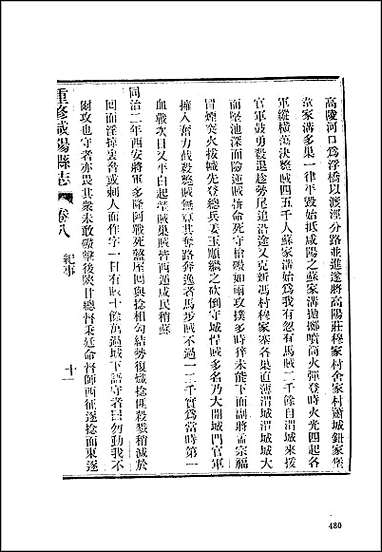 高陵河口爲浮橋以渡涇分路並進遂將高陽莊穆家村舍家村蕭城鈕家堡
韋家溝多巢一律平毀始抵咸陽之蘇家溝拋擲噴筒火彈登時火光四起各
軍縱橫蕩決斃賊四五千人蘇家溝始爲我有忽有馬賊二千餘自渭城來援
官軍鼓勇殺退趁勢尾追沿途又克新馮村穆家寨各巢直薄渭城渭城城大
而堅池深而險逆賊拚命死守槍礮如雨攻撲多時猝未能下而副將孟宗福
冒煙突火拔幟先登總兵姜玉順繼之砍倒守城悍賊多名乃大開城門官軍
擁入奮力截殺斃賊無算其奪路奔逸者馬步賊不過一二千實爲當時第一
血戰次日又平白起鄒賊巢賊皆西遁咸民稍蘇
同治二年西安將軍多隆阿戰死盩厔回與捻相勾結勢復熾捻傳殺戮稍減於
回而淫掠或刺人面作字一日有賊十餘萬過城下語守者曰勿動我不
爾攻也守者亦畏其衆未敢礮擊後陝甘總督秉廷命督師西征逐捻而東逐
重修咸陽縣志
卷八
紀事
十一
480